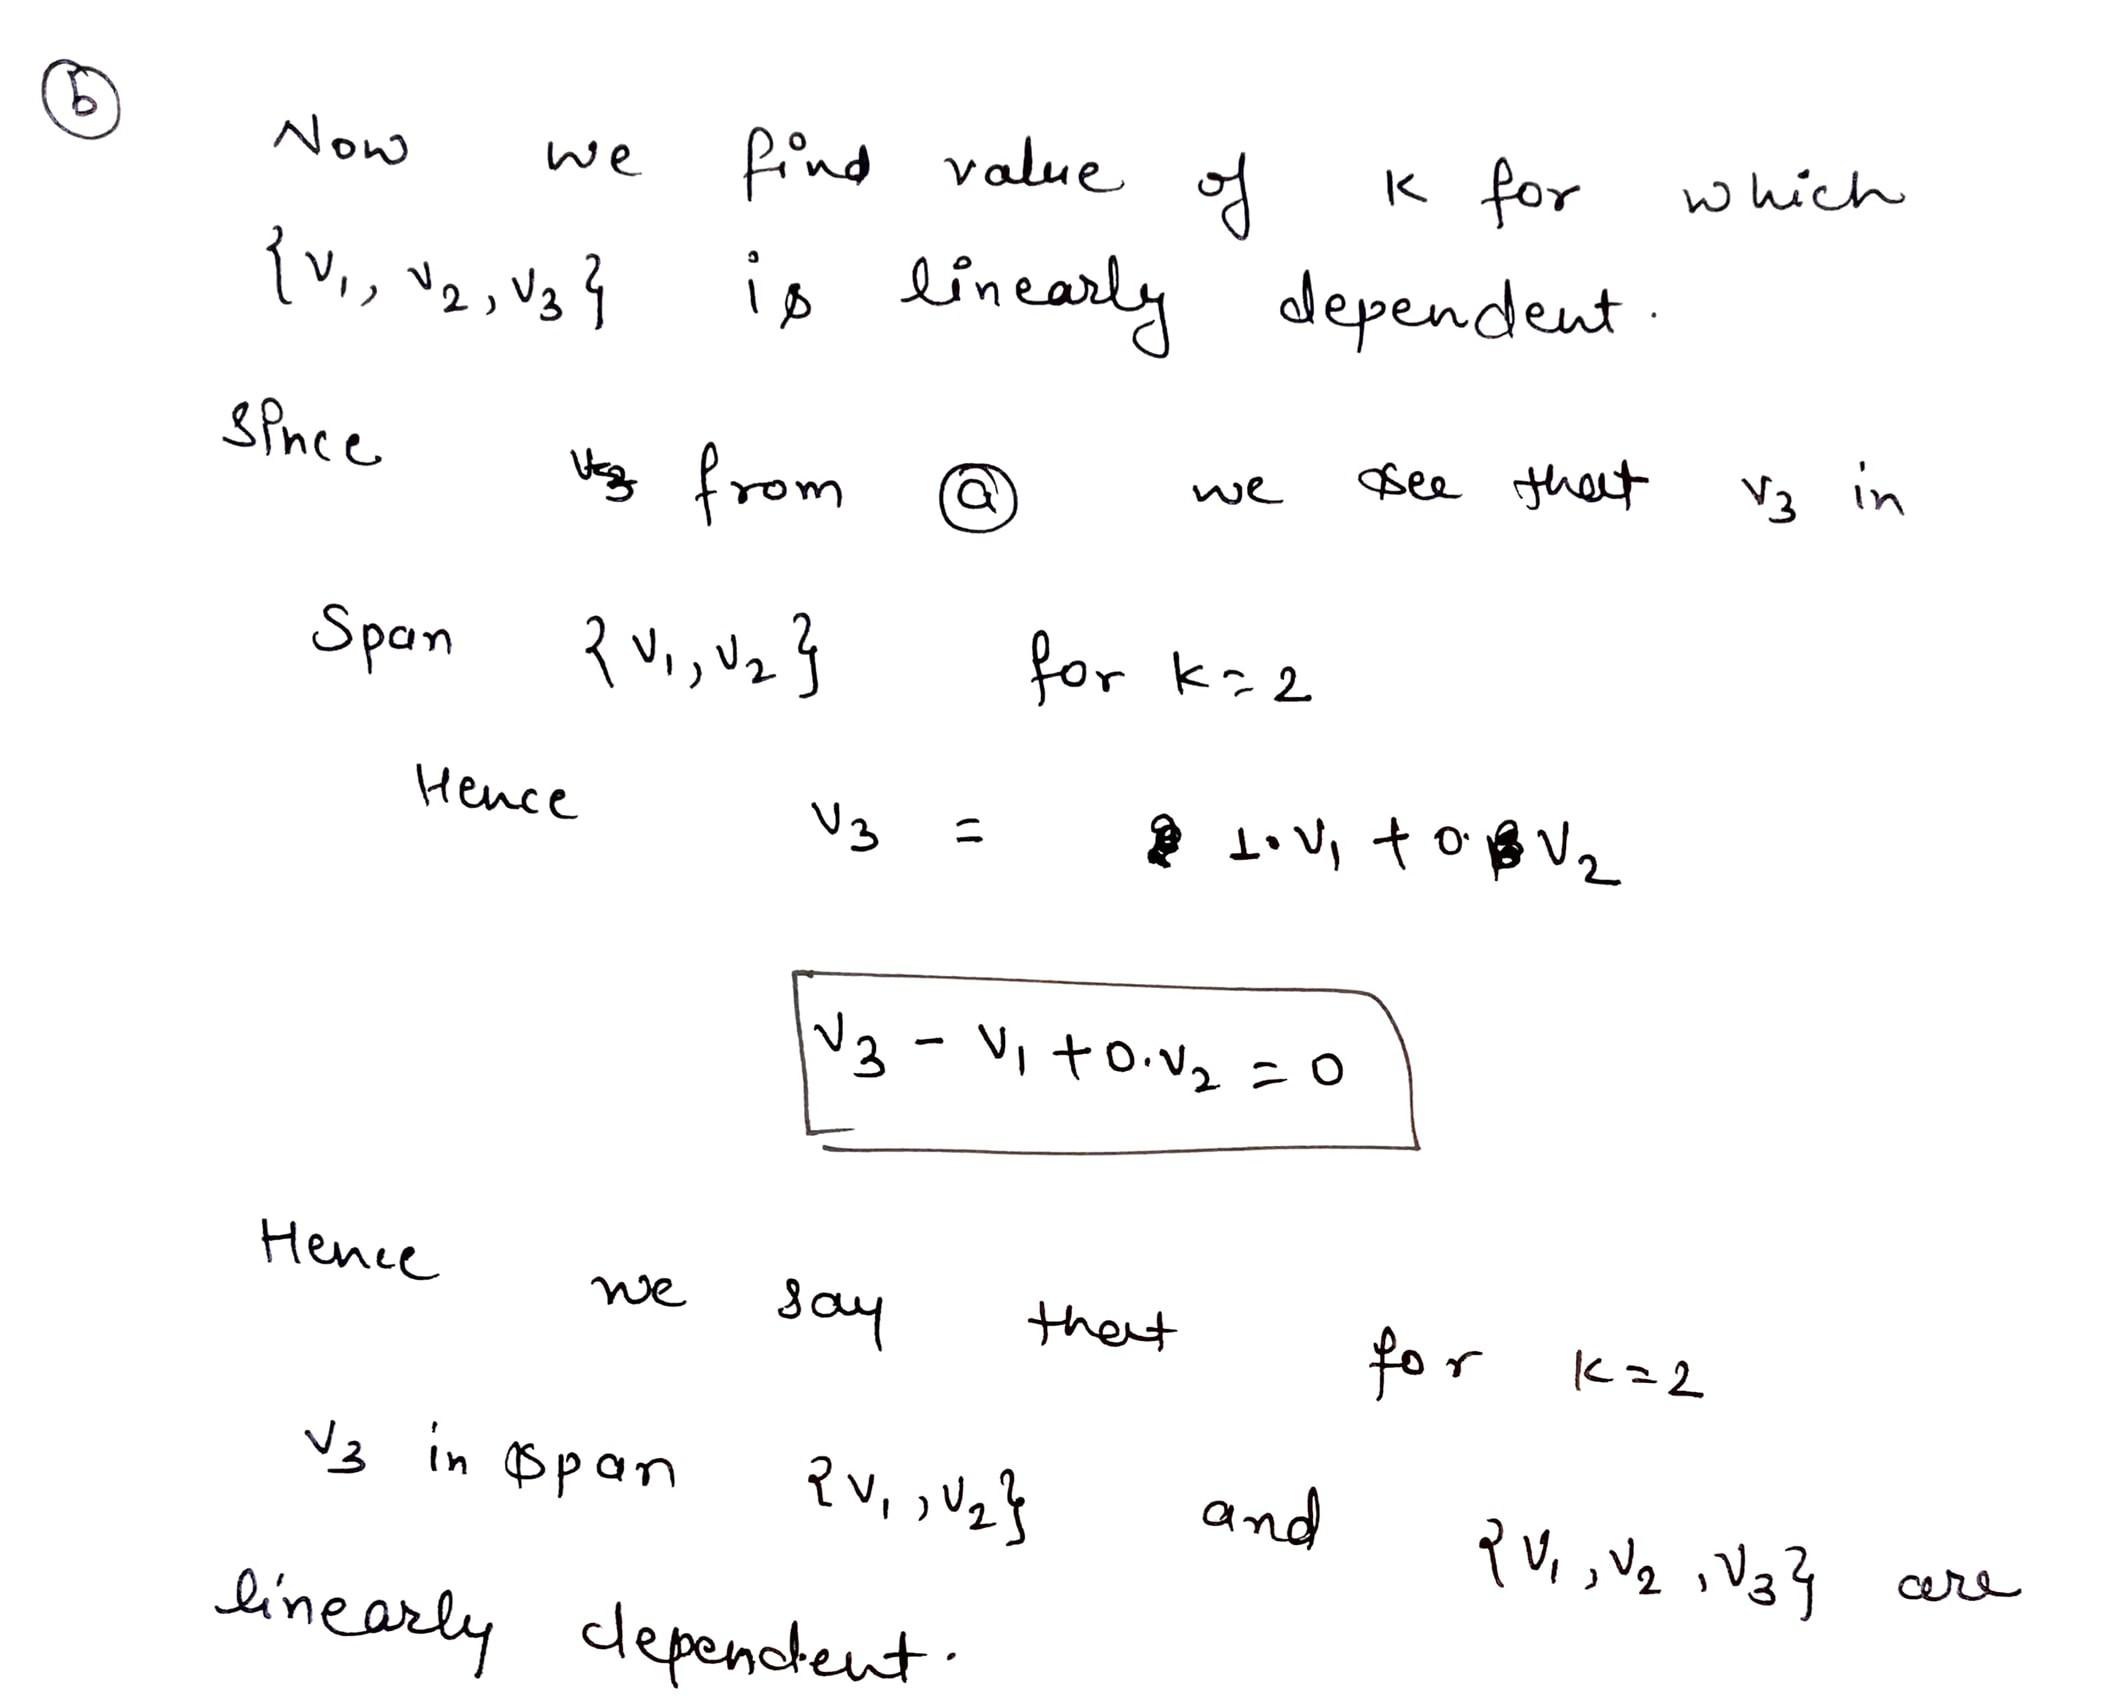 b
Now we find value of K for which
{V1, V2, V3} is linearly dependent.
Since from a we see that V3 in
Span {V1, V2} for k=2
Hence V3 = 1.V1 + 0. V2
V3 - V1 + 0.V2 = 0
Hence we say that for K=2
V3 in Span {V1, V2} and {V1, V2, V3} are
linearly dependent.